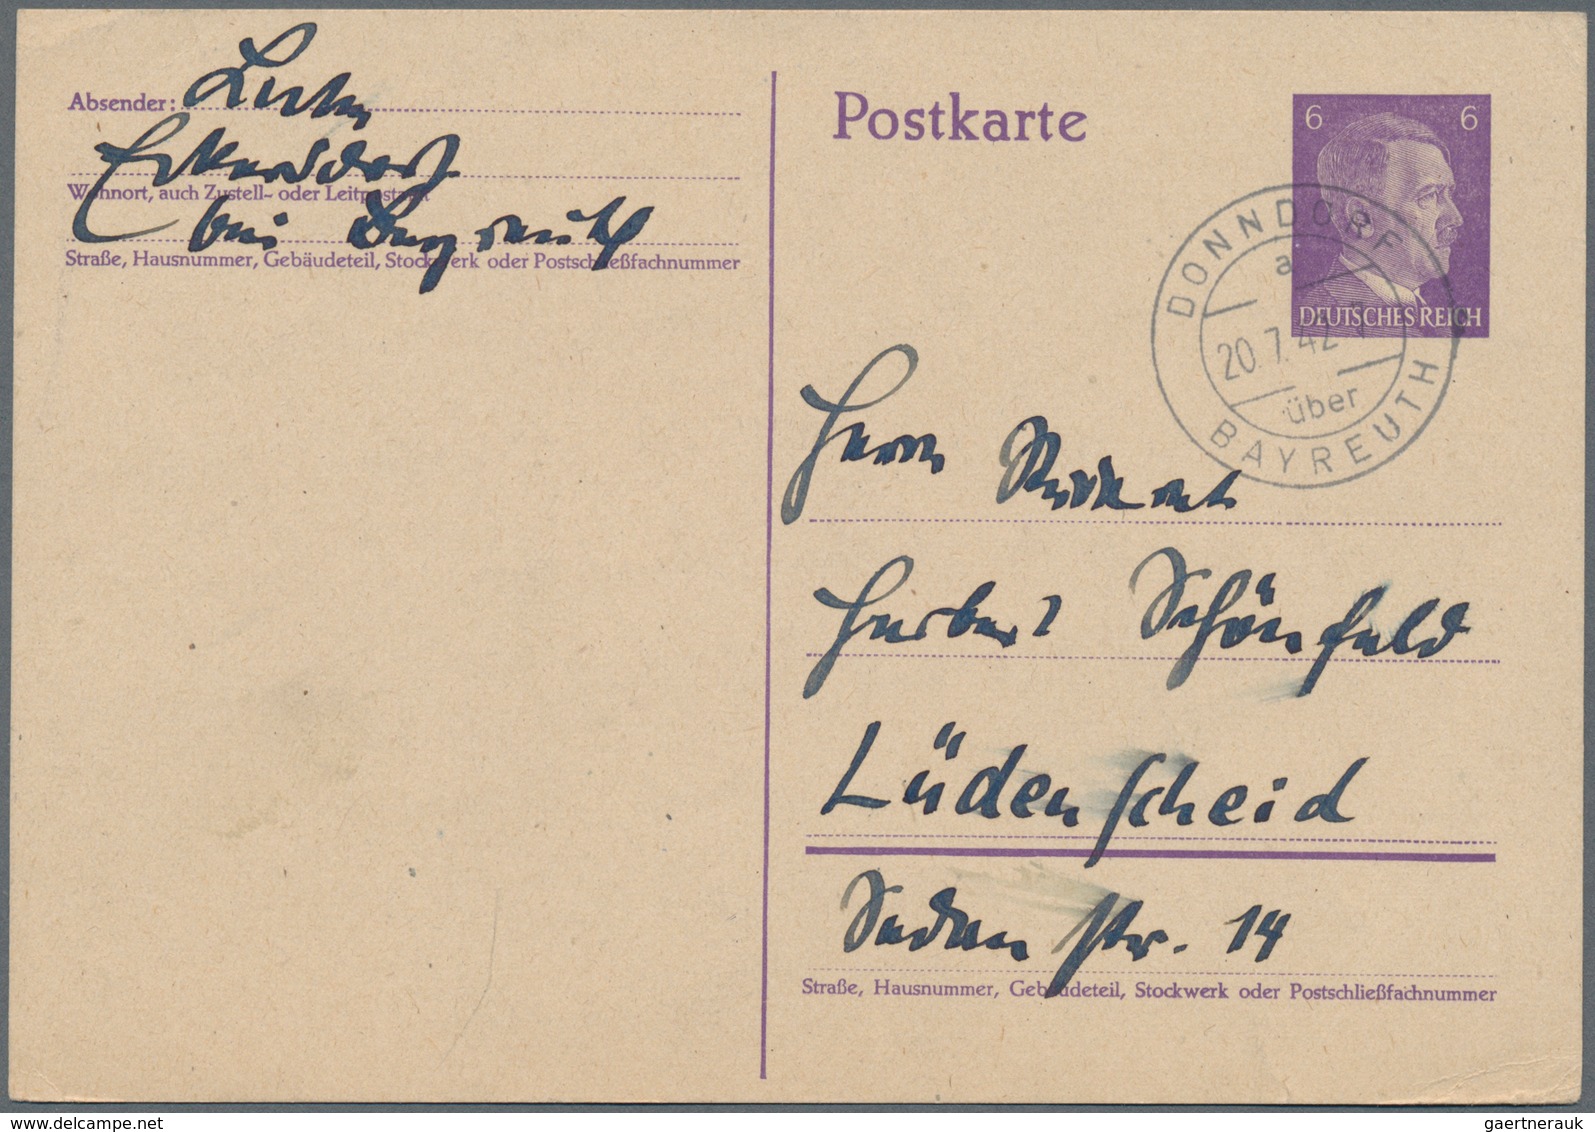 Absender:
Eckersdorf
Wohnort, auch Zustell- oder Leitpostamt
bei Bayreuth
Straße, Hausnummer, Gebäudeteil, Stockwerk oder Postschließfachnummer
Postkarte
6 6
DEUTSCHES REICH
DONNDORF
a
20.7.42
über
BAYREUTH
Herrn
Herbert Schönfeld
Lüdenscheid
Sedanstr. 14
Straße, Hausnummer, Gebäudeteil, Stockwerk oder Postschließfachnummer
www.delcampe.net
gaertnerauk